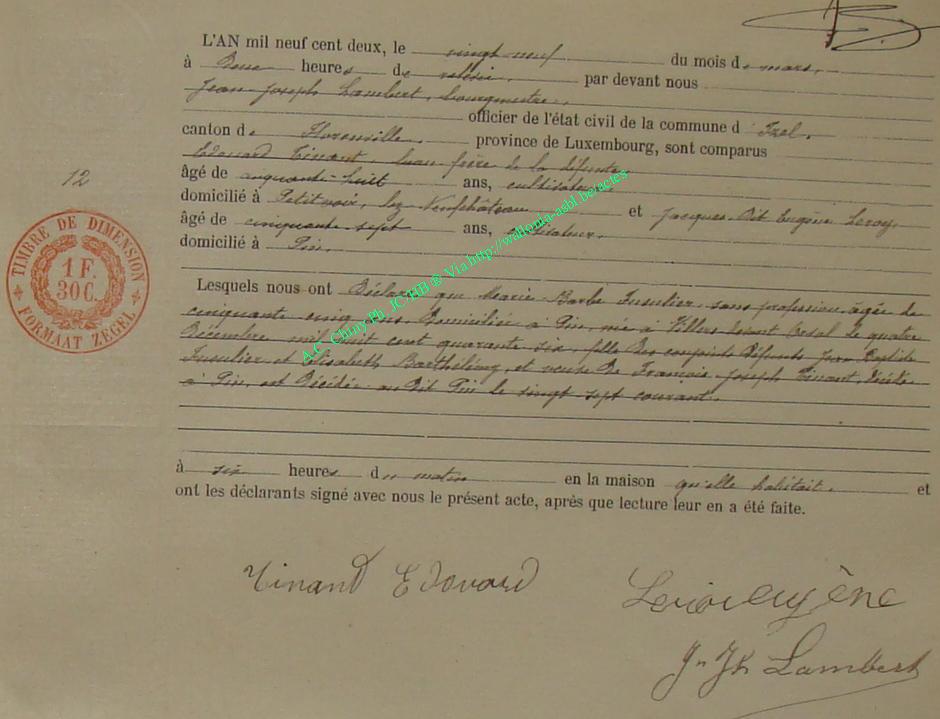 L'AN mil neuf cent deux, le vingt neuf du mois de mars,
à Deux heures de relevée, par devant nous
Jean Joseph Lambert, bourgmestre,
officier de l'état civil de la commune d Izel,
canton de Florenville, province de Luxembourg, sont comparus
Edouard Tinant, beau frère de la défunte,
âgé de cinquante-huit ans, cultivateur
domicilié à Petitvoir, lez Neufchâteau et Jacques Dit Eugène Leroy,
âgé de cinquante sept ans, cultivateur,
domicilié à Pin.
12
TIMBRE DE DIMENSION
1 F.
30 C.
FORMAAT ZEGEL
Lesquels nous ont Déclaré que Marie Barbe Fusulier, sans profession, âgée de
cinquante cinq ans, Domiciliée à Pin, née à Villers devant Orval le quatre
Décembre mil huit cent quarante six, fille Des conjoints Défunts Jean Baptiste
Fusulier et Elisabeth Barthélémy, et veuve De François Joseph Tinant, Décédé
à Pin, est Décédée au Dit Pin le vingt sept courant.
à six heures du matin en la maison qu'elle habitait. et
ont les déclarants signé avec nous le présent acte, après que lecture leur en a été faite.
Tinant Edouard
Leroy eugène
Jn Jh Lambert
A.C. Chiny Ph. JC HB ® Via http://wallonia-asbl.be/actes